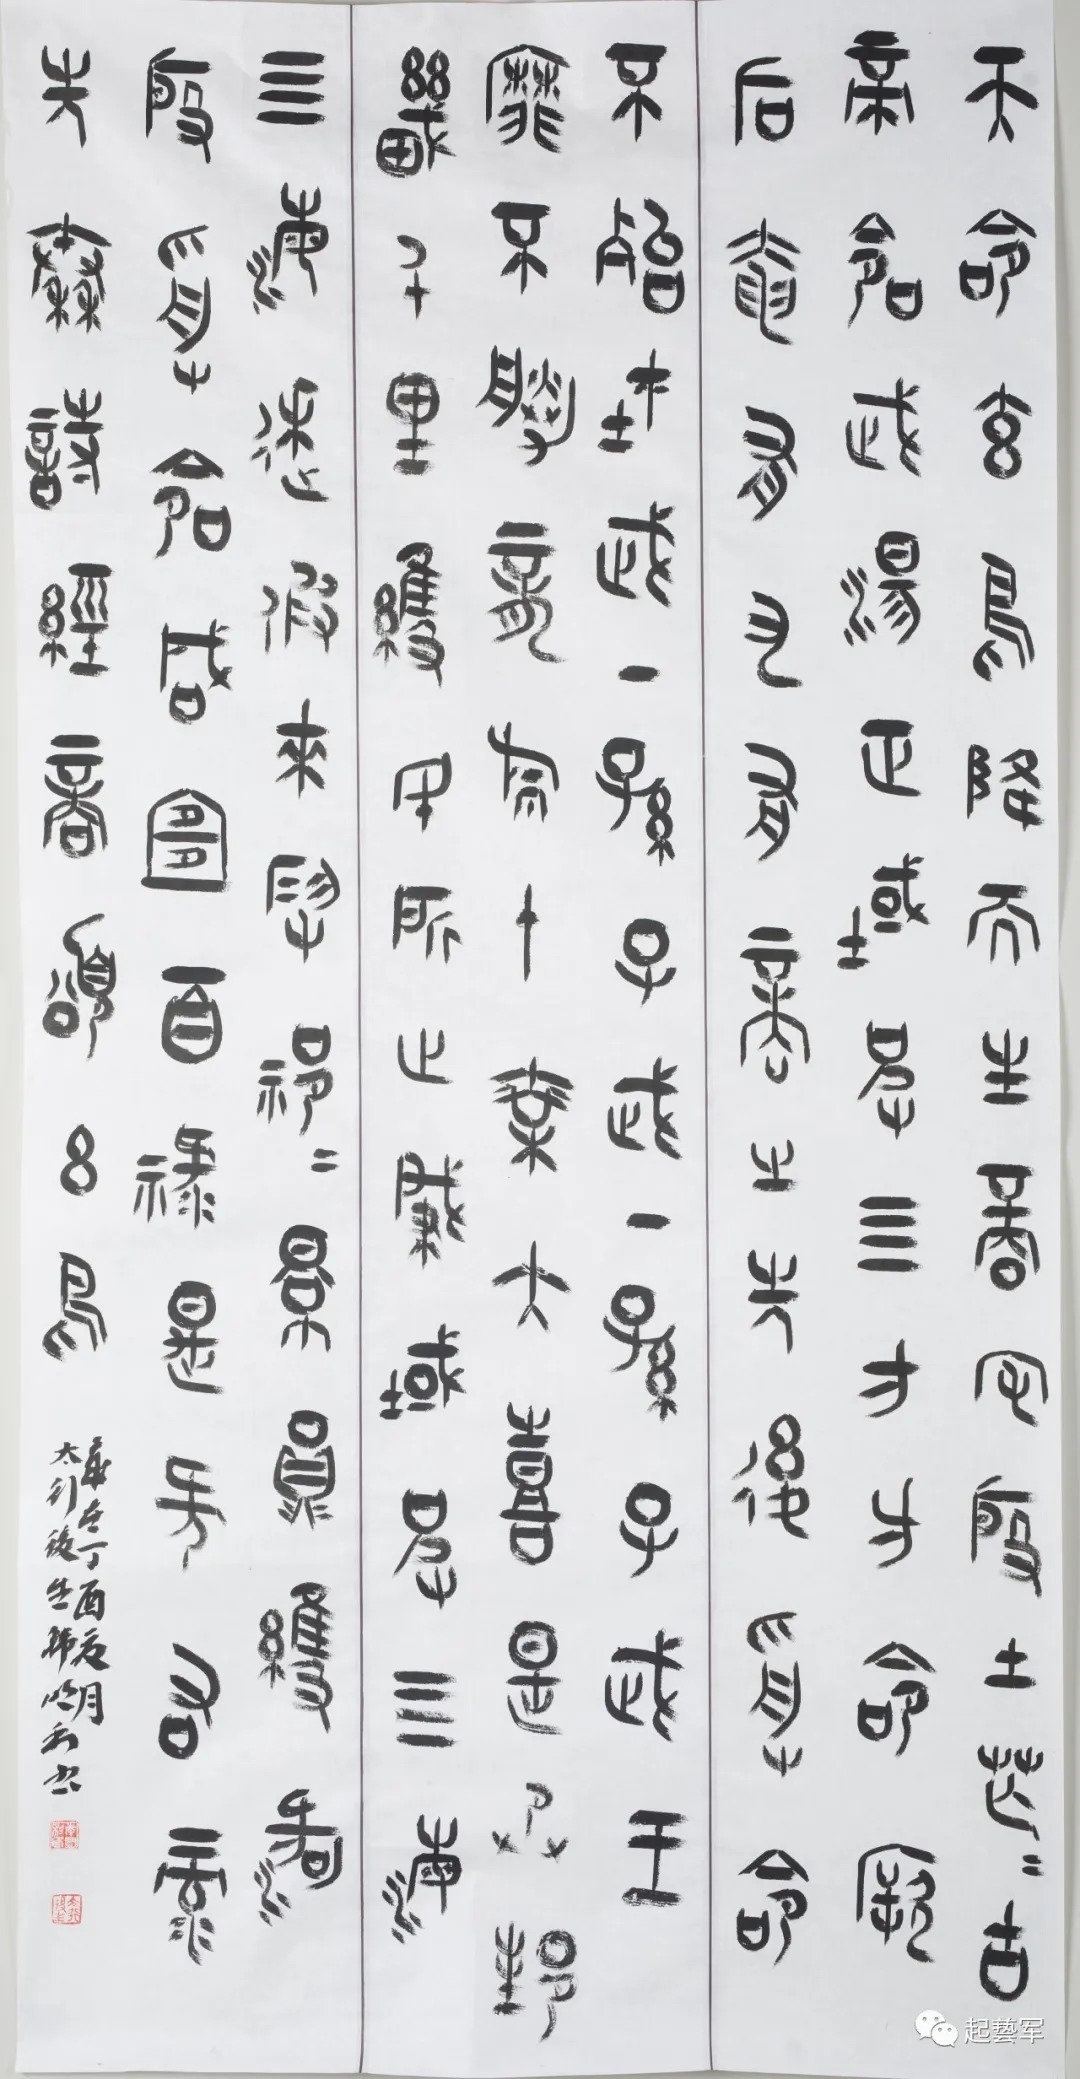 天命玄鳥降而生商宅殷土芒〻古
帝命武湯正域彼亖方方命厥
后奄有九有商之先後受命
不殆在武丁孫子武丁孫子武王
靡不勝龍旂十乘大喜是承邦
畿千里維民所止肇域彼亖海
亖海來假來假祁〻景員維河
殷受命咸宜百祿是何右录
先秦詩經商頌玄鳥
歲在丁酉月
太行後生书
起藝军